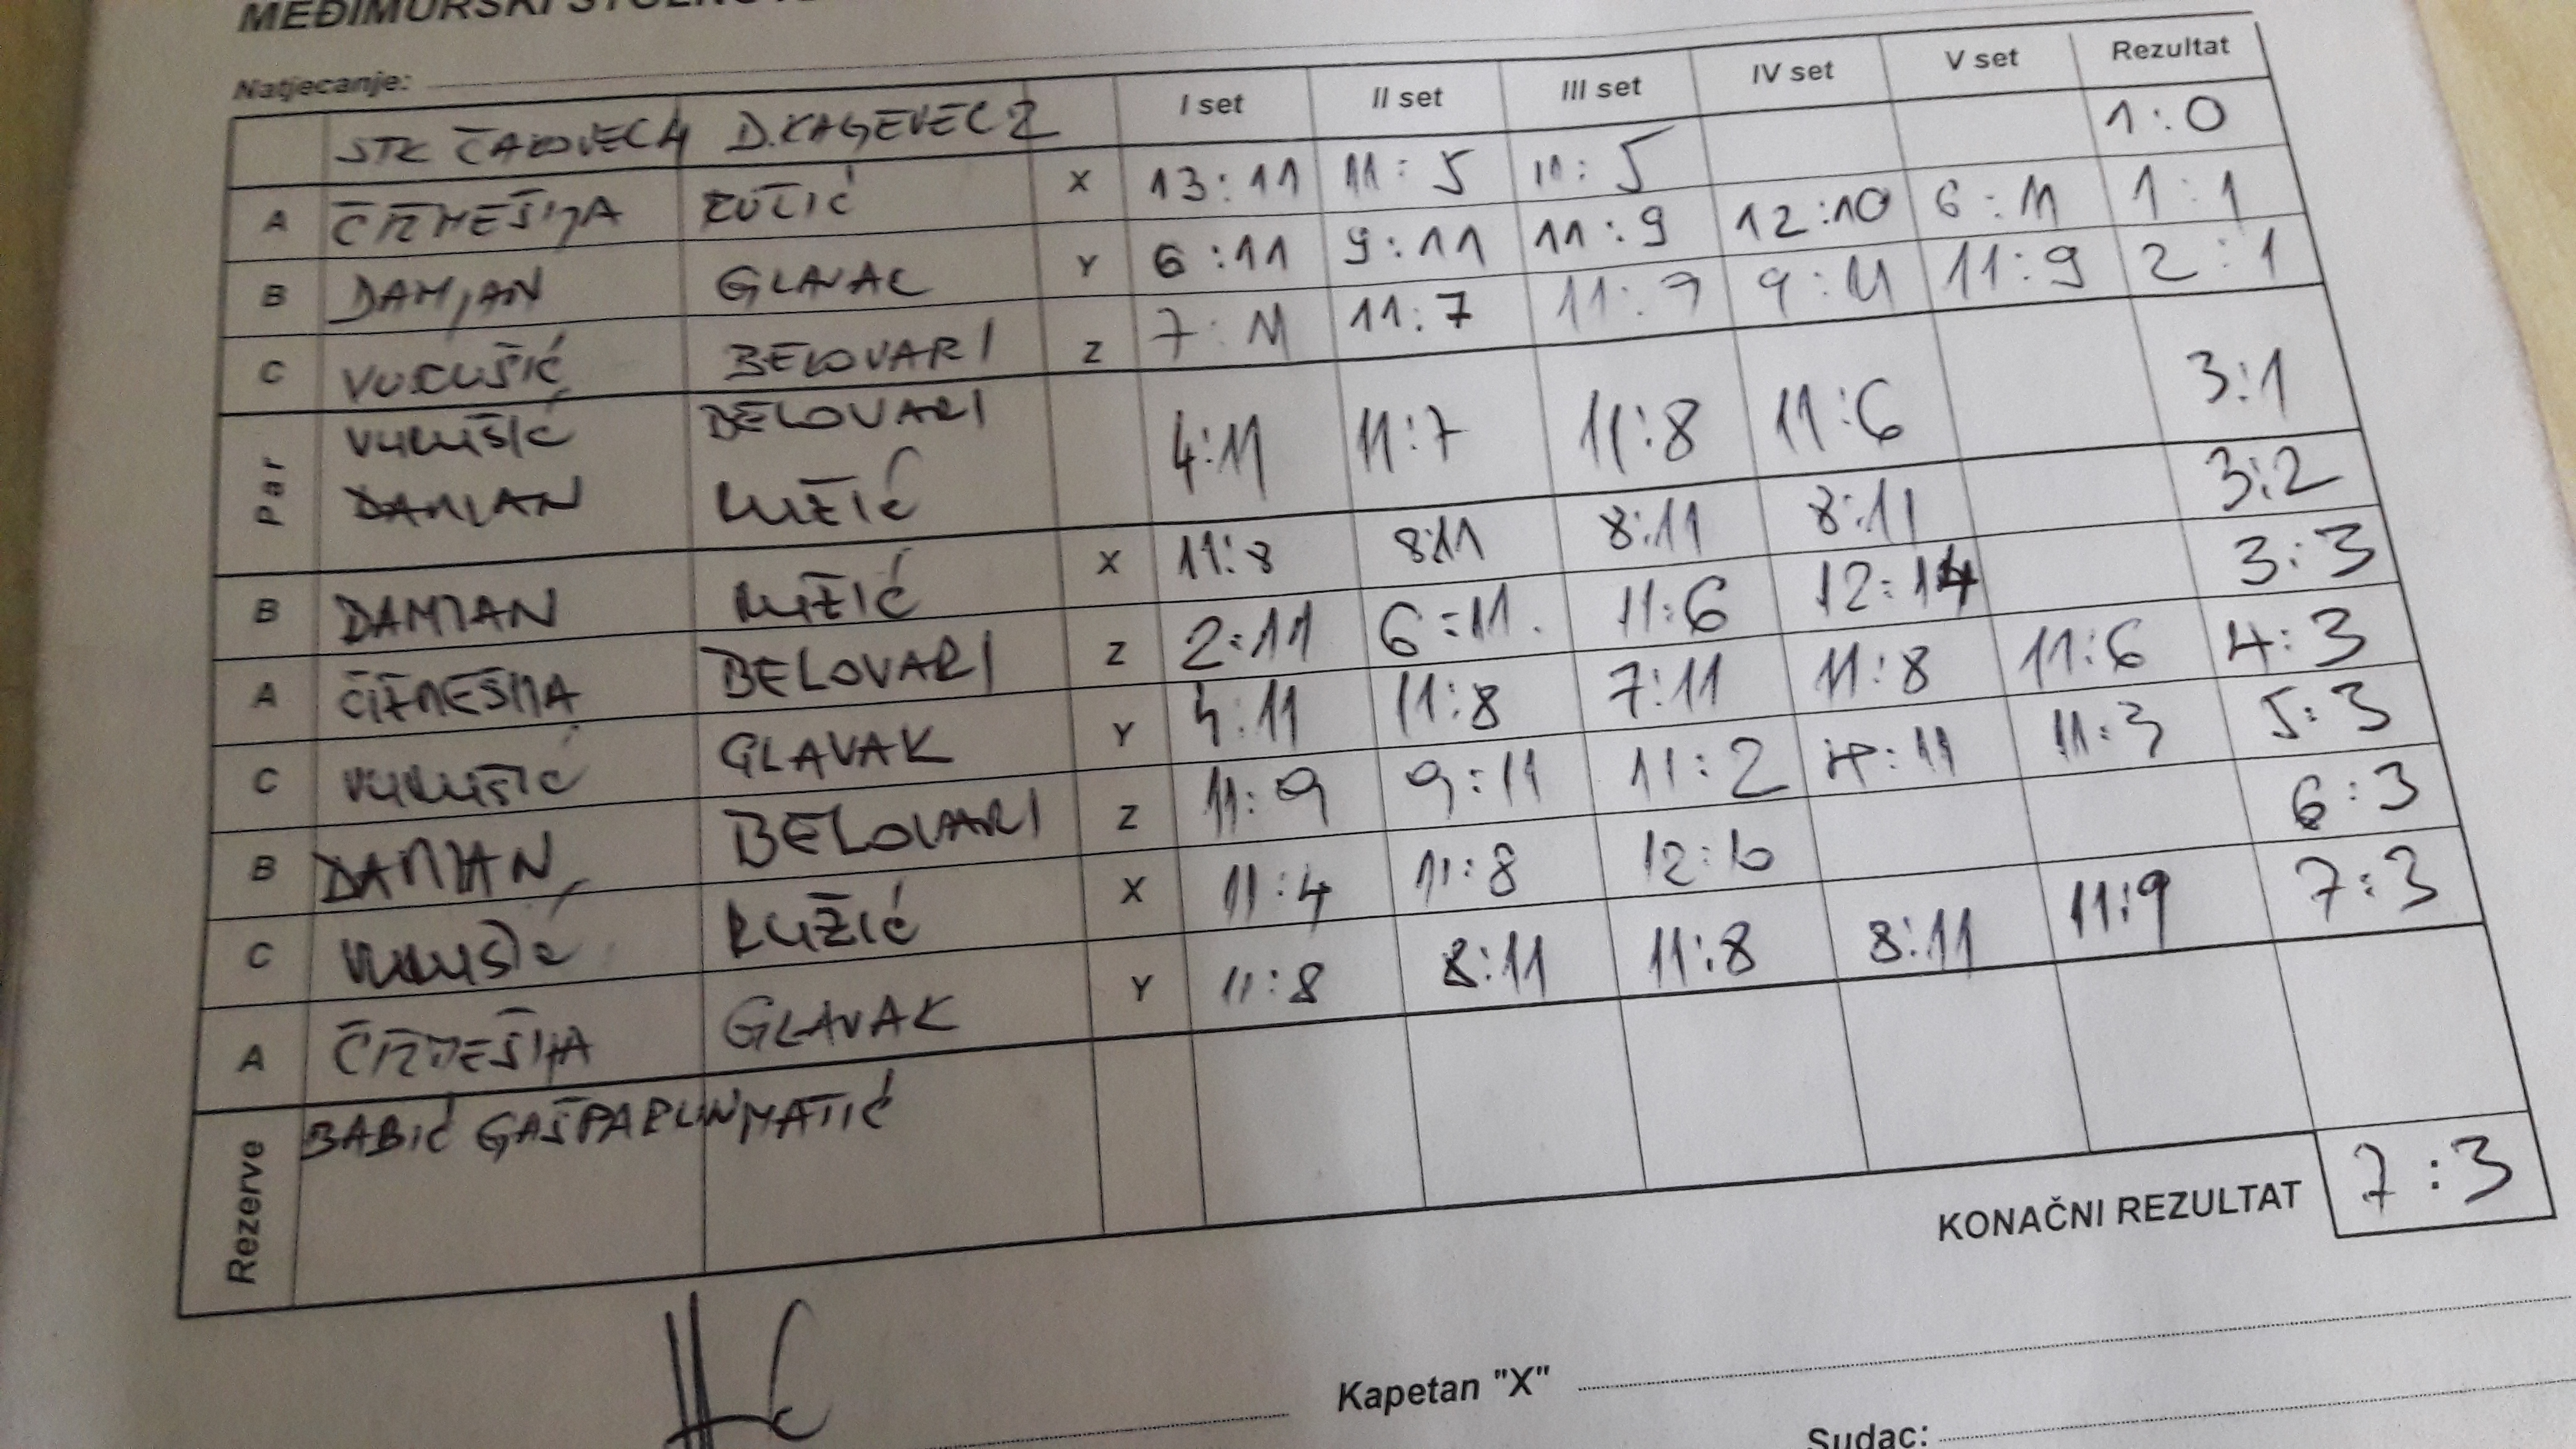 Natjecanje:
STK ČAKOVEC 4 D. KAGEVEC 2 I set II set III set IV set V set Rezultat
A ČIŽMEŠIJA X 13:11 11:5 11:5 1:0
B DAMJAN GLAVAC Y 6:11 9:11 11:9 12:10 6:11 1:1
C VUKUŠIĆ BELOVARI Z 7:11 11:7 11:9 9:11 11:9 2:1
Par VUKUŠIĆ BELOVARI 4:11 11:7 11:8 11:6 3:1
DAMIAN RUŽIĆ
B DAMIAN RUŽIĆ X 11:8 8:11 8:11 8:11 3:2
A ČIŽMEŠIJA BELOVARI Z 2:11 6:11 11:6 12:14 3:3
C VUKUŠIĆ GLAVAK Y 4:11 11:8 7:11 11:8 11:6 4:3
B DAMIAN BELOVARI Z 11:9 9:11 11:2 :11 11:3 5:3
C VUKUŠIĆ RUŽIĆ X 11:4 11:8 12:10 6:3
A ČIŽMEŠIJA GLAVAK Y 11:8 8:11 11:8 8:11 11:9 7:3
Rezerve BABIĆ GAŠPARLIN MATIĆ
KONAČNI REZULTAT 7:3
Kapetan "X"
Sudac: